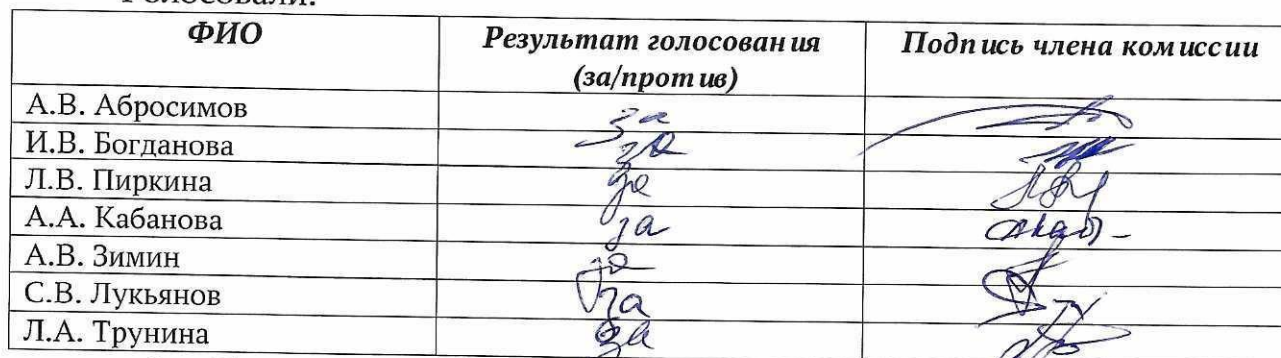 Голосовали:
ФИО Результат голосования Подпись члена комиссии
(за/против)
А.В. Абросимов за
И.В. Богданова за
Л.В. Пиркина за
А.А. Кабанова за
А.В. Зимин за
С.В. Лукьянов за
Л.А. Трунина за